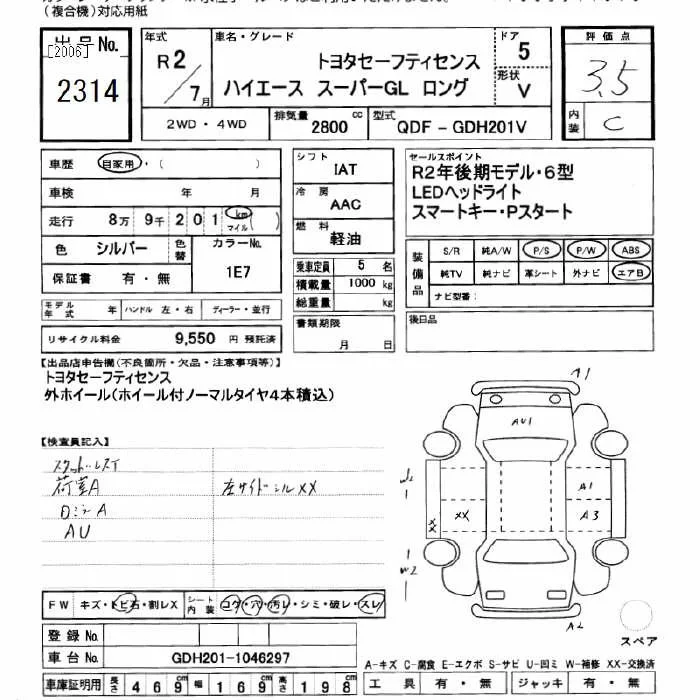 (複合機)対応用紙
出品No.
[2006]
2314
年式 R2/7月
車名・グレード
トヨタセーフティセンス
ハイエース スーパーGL ロング
ドア 5
形状 V
評価点
3.5
内装 C
2WD・4WD
排気量 2800 cc
型式 QDF-GDH201V
車歴 自家用・( )
車検 年 月
走行 8万 9千 2 0 1 km マイル ( )
色 シルバー 色替 カラーNo. 1E7
保証書 有・無
モデル年式 年 ハンドル 左・右 ディーラー・並行
リサイクル料金 9,550 円 預託済
シフト IAT
冷房 AAC
燃料 軽油
乗車定員 5 名
積載量 1000 kg
総重量 kg
書類期限
月 日
セールスポイント
R2年後期モデル・6型
LEDヘッドライト
スマートキー・Pスタート
装備品 S/R 純A/W P/S P/W ABS
純TV 純ナビ 革シート 外ナビ エアB
ナビ型番:
後日品
【出品店申告欄(不良箇所・欠品・注意事項等)】
トヨタセーフティセンス
外ホイール(ホイール付ノーマルタイヤ4本積込)
【検査員記入】
荷室A 左サイドシルXX
ロミラA
AU
A1
AU1
W2
A1
XX
XX
A3
W2
A2
スペア
FW キズ・トビ石・割レX シート内装 コゲ・穴・汚レ・シミ・破レ・スレ
登録No.
車台No. GDH201-1046297
車庫証明用 長さ 469cm 幅 169cm 高さ 198cm
A-キズ C-腐食 E-エクボ S-サビ U-凹ミ W-補修 XX-交換済
工具 有・無 ジャッキ 有・無